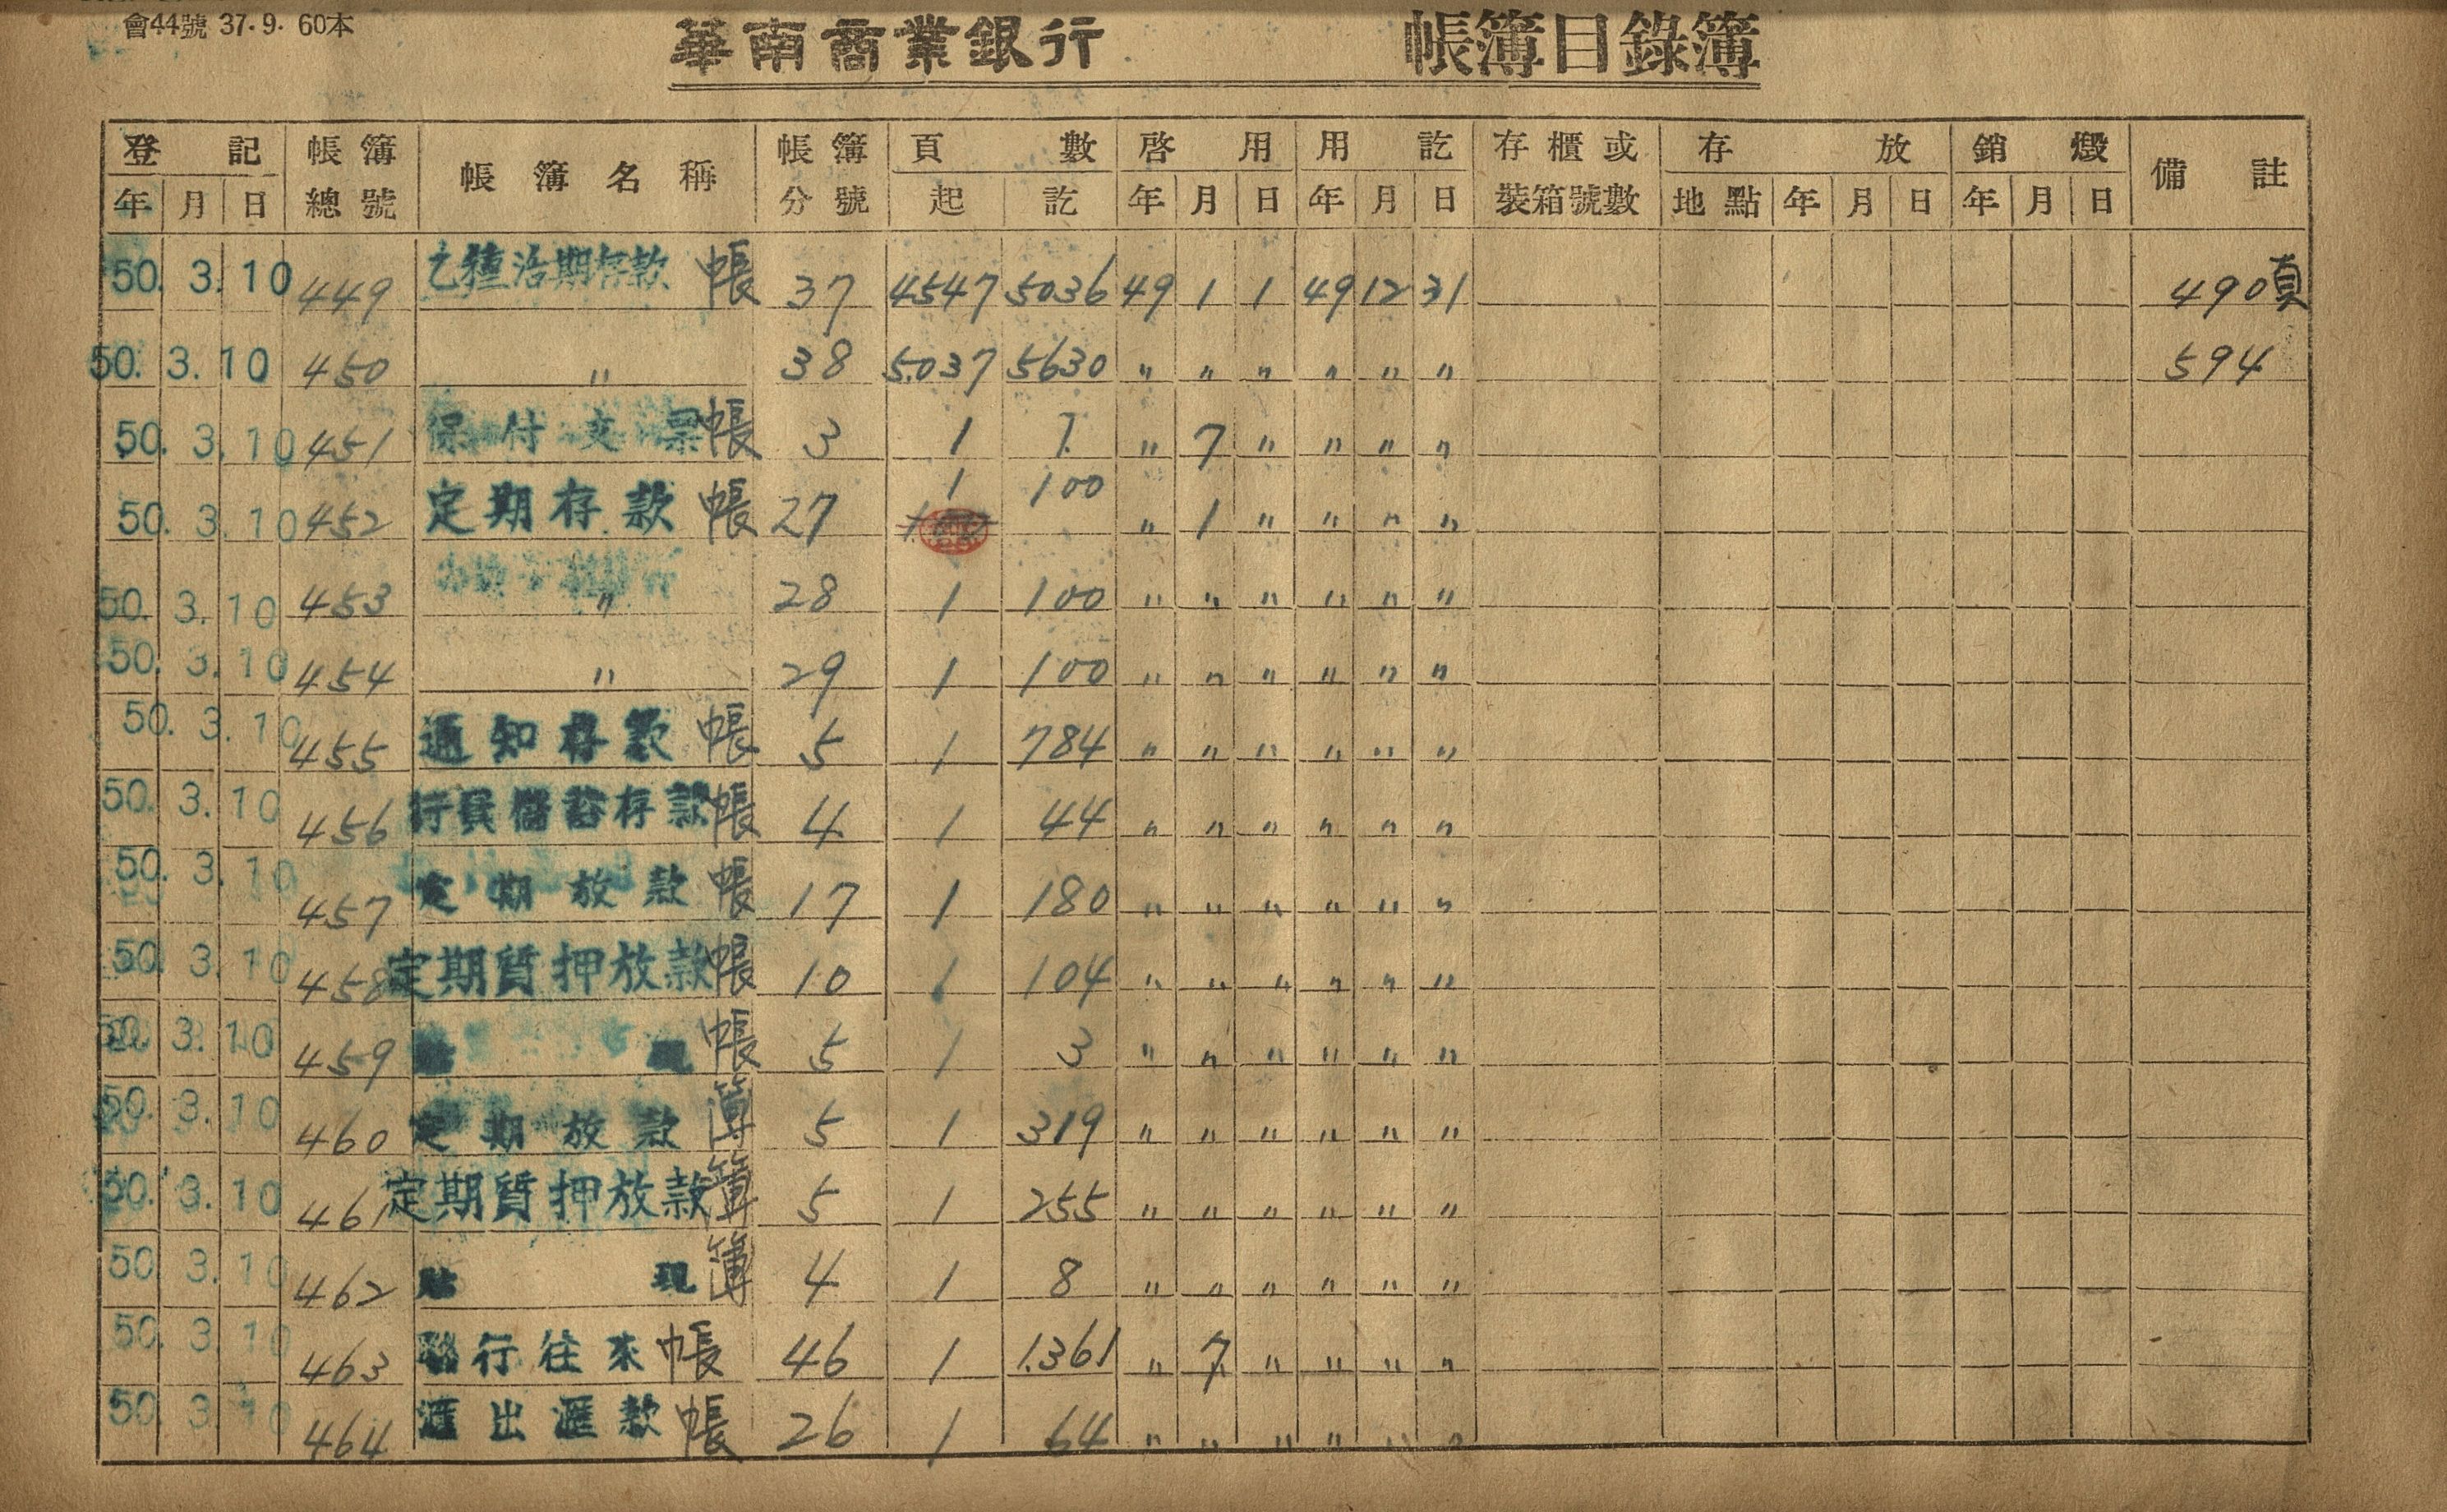 會44號 37.9. 60本
華南商業銀行 帳簿目錄簿
登記 帳簿總號 帳簿名稱 帳簿分號 頁數 啓用 用訖 存櫃或裝箱號數 存放 銷燬 備註
年 月 日 起 訖 年 月 日 年 月 日 地點 年 月 日 年 月 日
50. 3. 10 449 乙種活期存款帳 37 4547 5036 49 1 1 49 12 31 490頁
50. 3. 10 450 〃 38 5037 5630 〃 〃 〃 〃 〃 〃 594
50. 3. 10 451 保付支票帳 3 1 7. 〃 7 〃 〃 〃 〃
50. 3. 10 452 定期存款帳 27 1 100 〃 1 〃 〃 〃 〃
50. 3. 10 453 〃 28 1 100 〃 〃 〃 〃 〃 〃
50. 3. 10 454 〃 29 1 100 〃 〃 〃 〃 〃 〃
50. 3. 10 455 通知存款帳 5 1 784 〃 〃 〃 〃 〃 〃
50. 3. 10 456 行員儲蓄存款帳 4 1 44 〃 〃 〃 〃 〃 〃
50. 3. 10 457 定期放款帳 17 1 180 〃 〃 〃 〃 〃 〃
50. 3. 10 458 定期質押放款帳 10 1 104 〃 〃 〃 〃 〃 〃
50. 3. 10 459 貼現帳 5 1 3 〃 〃 〃 〃 〃 〃
50. 3. 10 460 定期放款簿 5 1 319 〃 〃 〃 〃 〃 〃
50. 3. 10 461 定期質押放款簿 5 1 255 〃 〃 〃 〃 〃 〃
50. 3. 10 462 貼現簿 4 1 8 〃 〃 〃 〃 〃 〃
50. 3. 10 463 聯行往來帳 46 1 1.361 〃 7 〃 〃 〃 〃
50. 3. 10 464 匯出匯款帳 26 1 64 〃 〃 〃 〃 〃 〃